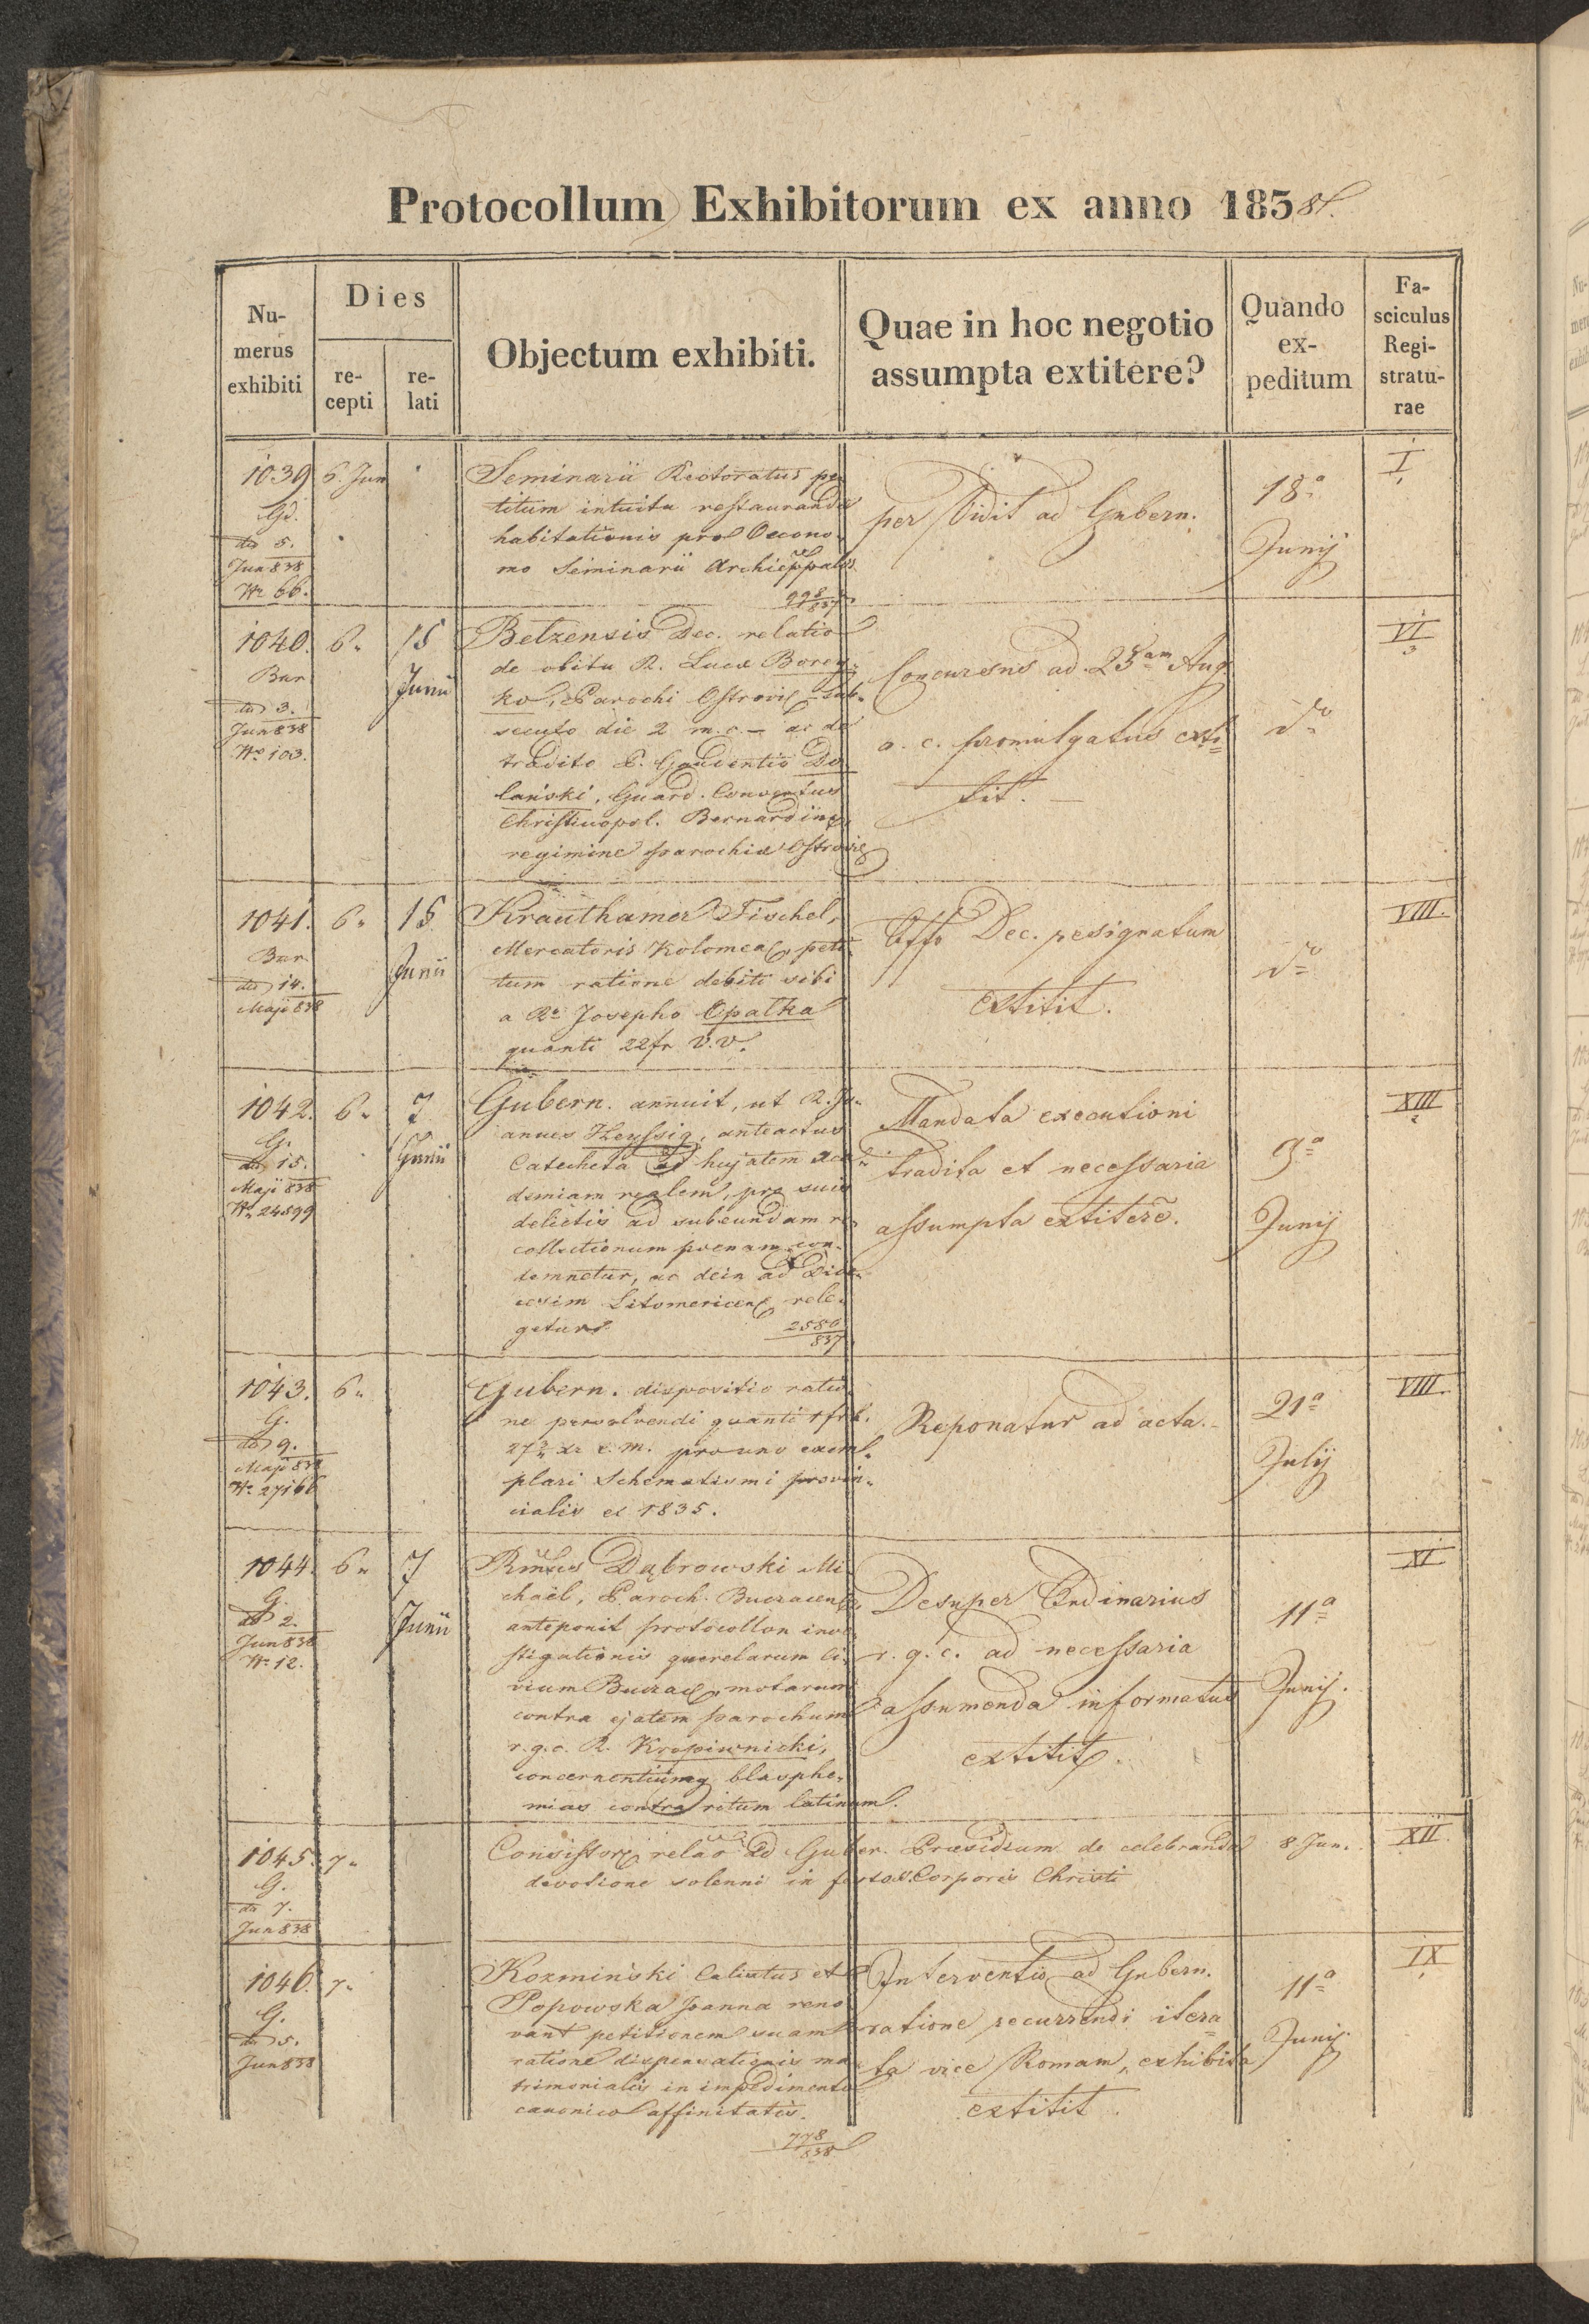 Protocollum Exhibitorum ex anno 1838.
Numerus exhibiti
Dies
recepti
relati
Objectum exhibiti.
Quae in hoc negotio assumpta extitere?
Quando expeditum
Fasciculus Registraturae
1039
Gd.
dto 5.
Jun 838
Nr 66.
6. Jun
Seminarii Rectoratus pe-
titum intuitu restaurandæ
habitationis pro Oecono-
mo Seminarii Archieppalis
998/837
per Vidit ad Gubern.
18a
Junij
I
1040.
Bar
dto 3.
Jun 838
No 103.
6.
15
Junii
Betzensis Dec. relatio
de obitu R. Lucæ Borcy-
ko, Parochi Ostrovie sub-
secuto die 2 m.c. – ac de
tradito P. Gaudentio Do-
lański, Guard. Conventus
Christinopol. Bernardino
regimine parochiæ Ostrovie
Concursus ad 23am Aug
a. c. promulgatus exti-
tit. –
do
VI
3
1041.
Bar
dto 14.
Maji 838
6.
15
Junii
Krauthamer Fischel,
Mercatoris Kolomeae peti-
tum ratione debiti sibi
a Re Josepho Opałka
quanti 22 fr V.V.
Offo Dec. resignatum
extitit.
do
VIII.
1042.
G.
dto 15.
Maji 838
Nr 24599
6.
7
Junii
Gubern. annuit, ut R. Jo-
annes Heyssig, anteactus
Catecheta ad hujatem aca-
demiam realem, pro suis
delictis ad subeundam re-
collectionum poenam con-
demnetur, ac dein ad Dioe-
cesim Litomericen rele-
getur.
2580/837
Mandata executioni
tradita et necessaria
assumpta extitere.
9a
Junij
XIII
2
1043.
G.
dto 9.
Maji 838
Nr 27166
6.
Gubern. dispositio ratio-
ne persolvendi quanti 1 fr
27 xr c.m. pro uno exem-
plari Schematismi provin-
cialis ex 1835.
Reponatur ad acta.
21a
Julij
VIII.
1044.
G.
dto 2.
Jun 838
Nr 12.
6.
7
Junii
Rmus Dąbrowski Mi-
chaël, Paroch. Buczacens
anteponit protocollon inve-
stigationis querelarum ci-
vium Buczac. motarum
contra ejatem parochum
r.g.c. R. Kropiwnicki,
concernentiumq blasphe-
mias contra ritum latinum.
Desuper Ordinarius
r. g. c. ad necessaria
assumenda informatus
extitit.
11a
Junij.
XI
1045.
G.
dto 7.
Jun 838
7.
Consistorii relao ad Guber. Præsidium de celebranda
devotione solenni in festo S. Corporis Christi
8 Jun.
XII.
1046.
G.
dto 5.
Jun 838
7.
Kozmiński Calixtus et
Popowska Joanna reno-
vant petitionem suam
ratione dispensationis ma-
trimonialis in impedimento
canonico affinitatis.
778/838
Interventio ad Gubern.
ratione recurrendi itera-
ta vice Romam, exhibita
extitit.
11a
Junij.
IX